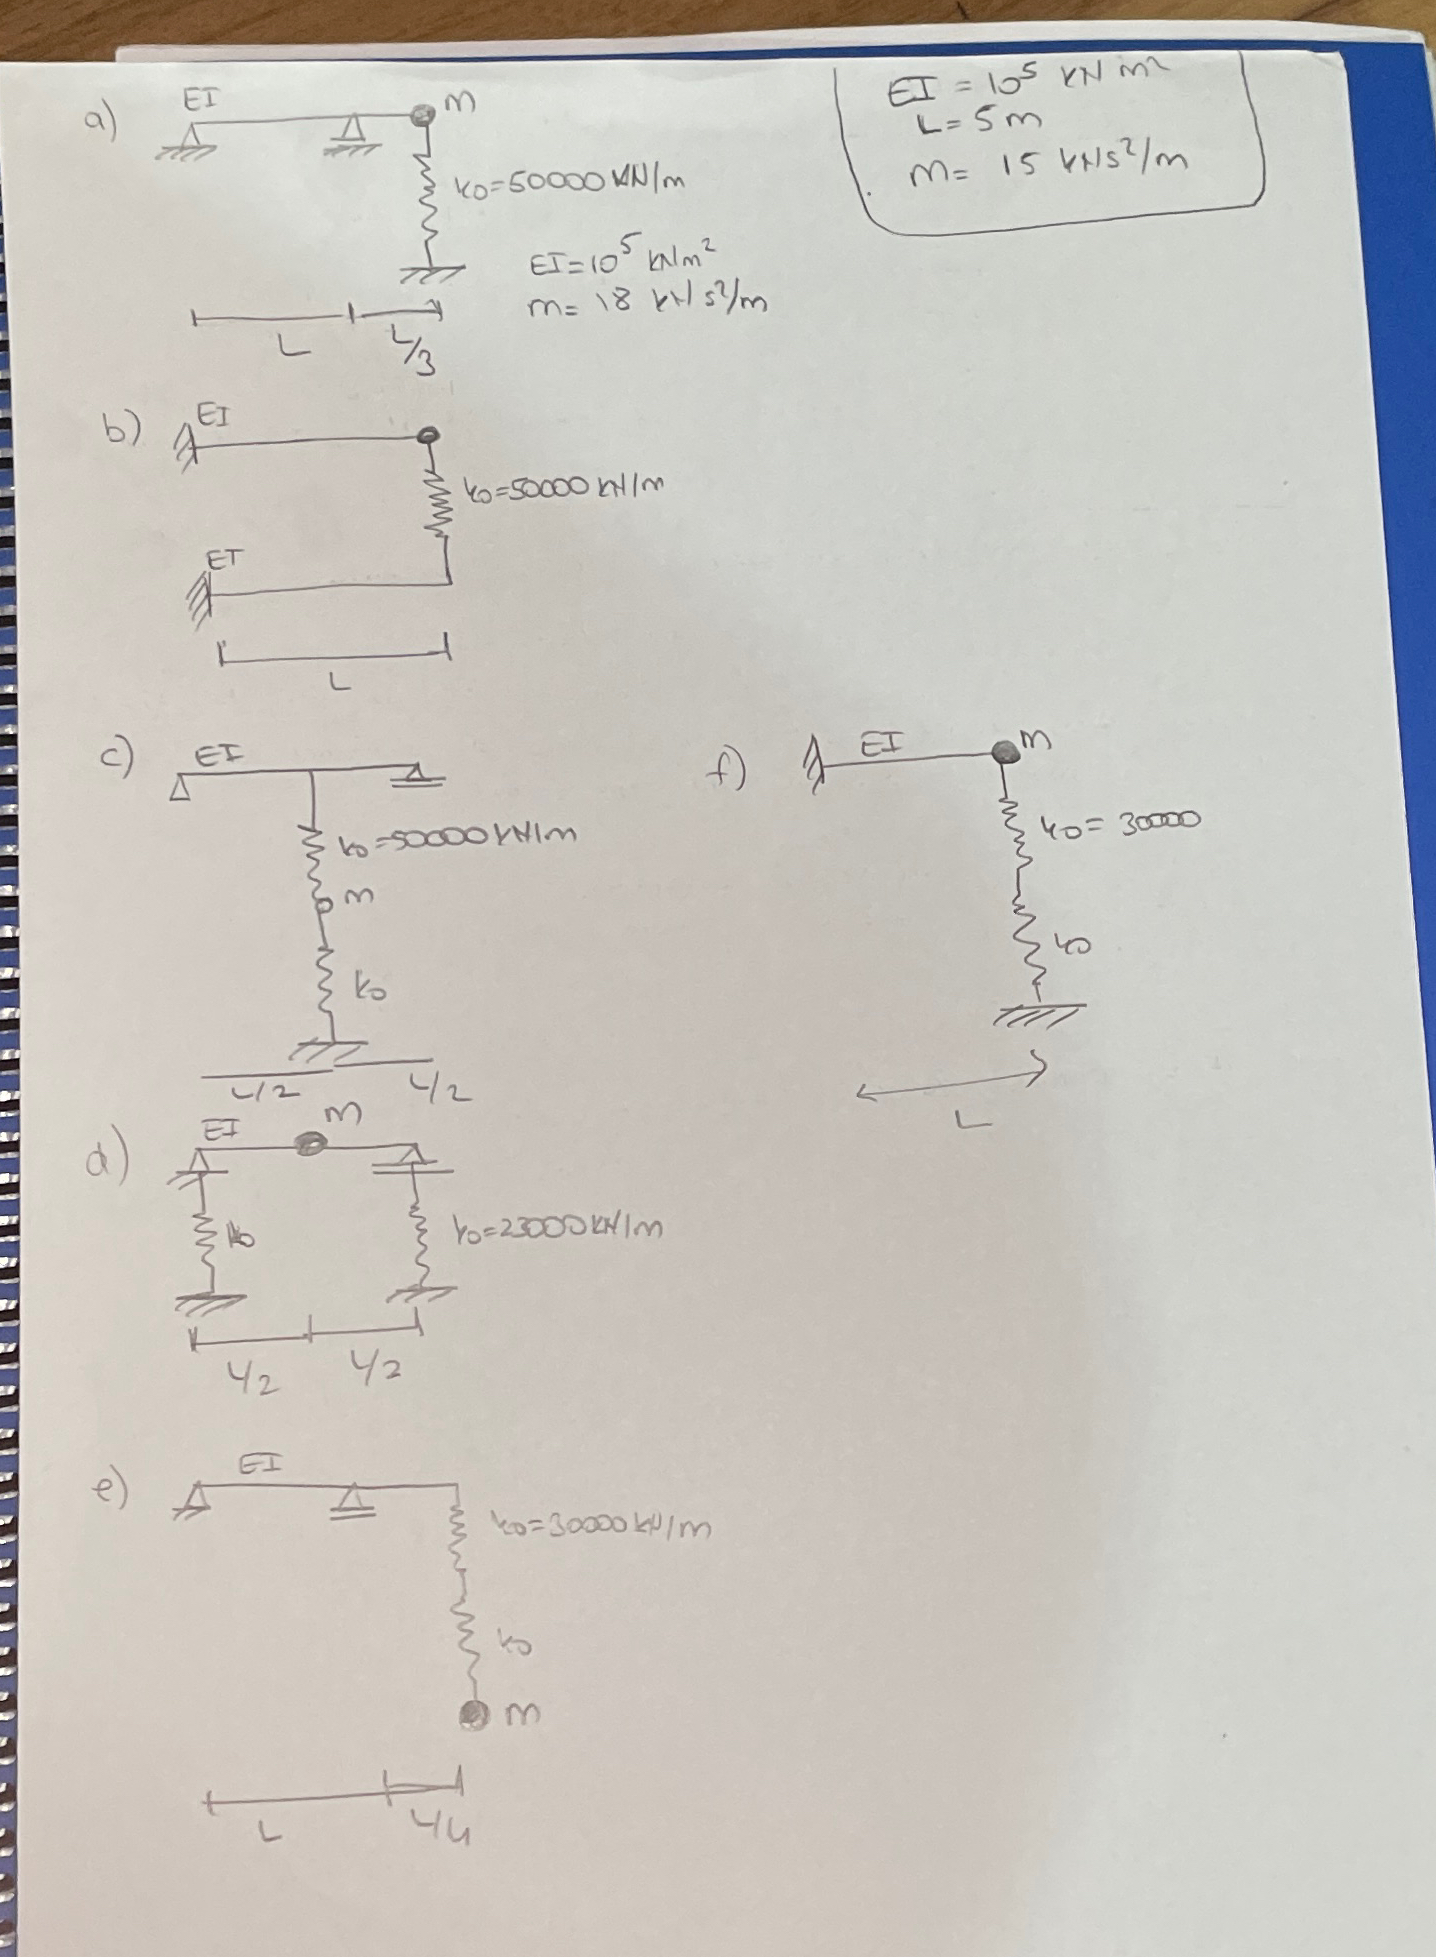 EI = 10⁵ kN m²
L = 5 m
m = 15 kNs²/m
a) EI m
k0=50000 kN/m
EI=10⁵ kNm²
m= 18 kN s²/m
L L/3
b) EI
k0=50000 kN/m
EI
L
c) EI
k0=50000 kN/m
m
k0
L/2 L/2
f) EI m
k0= 30000
k0
L
d) EI m
k0 k0=23000 kN/m
L/2 L/2
e) EI
k0=30000 kN/m
k0
m
L L/4